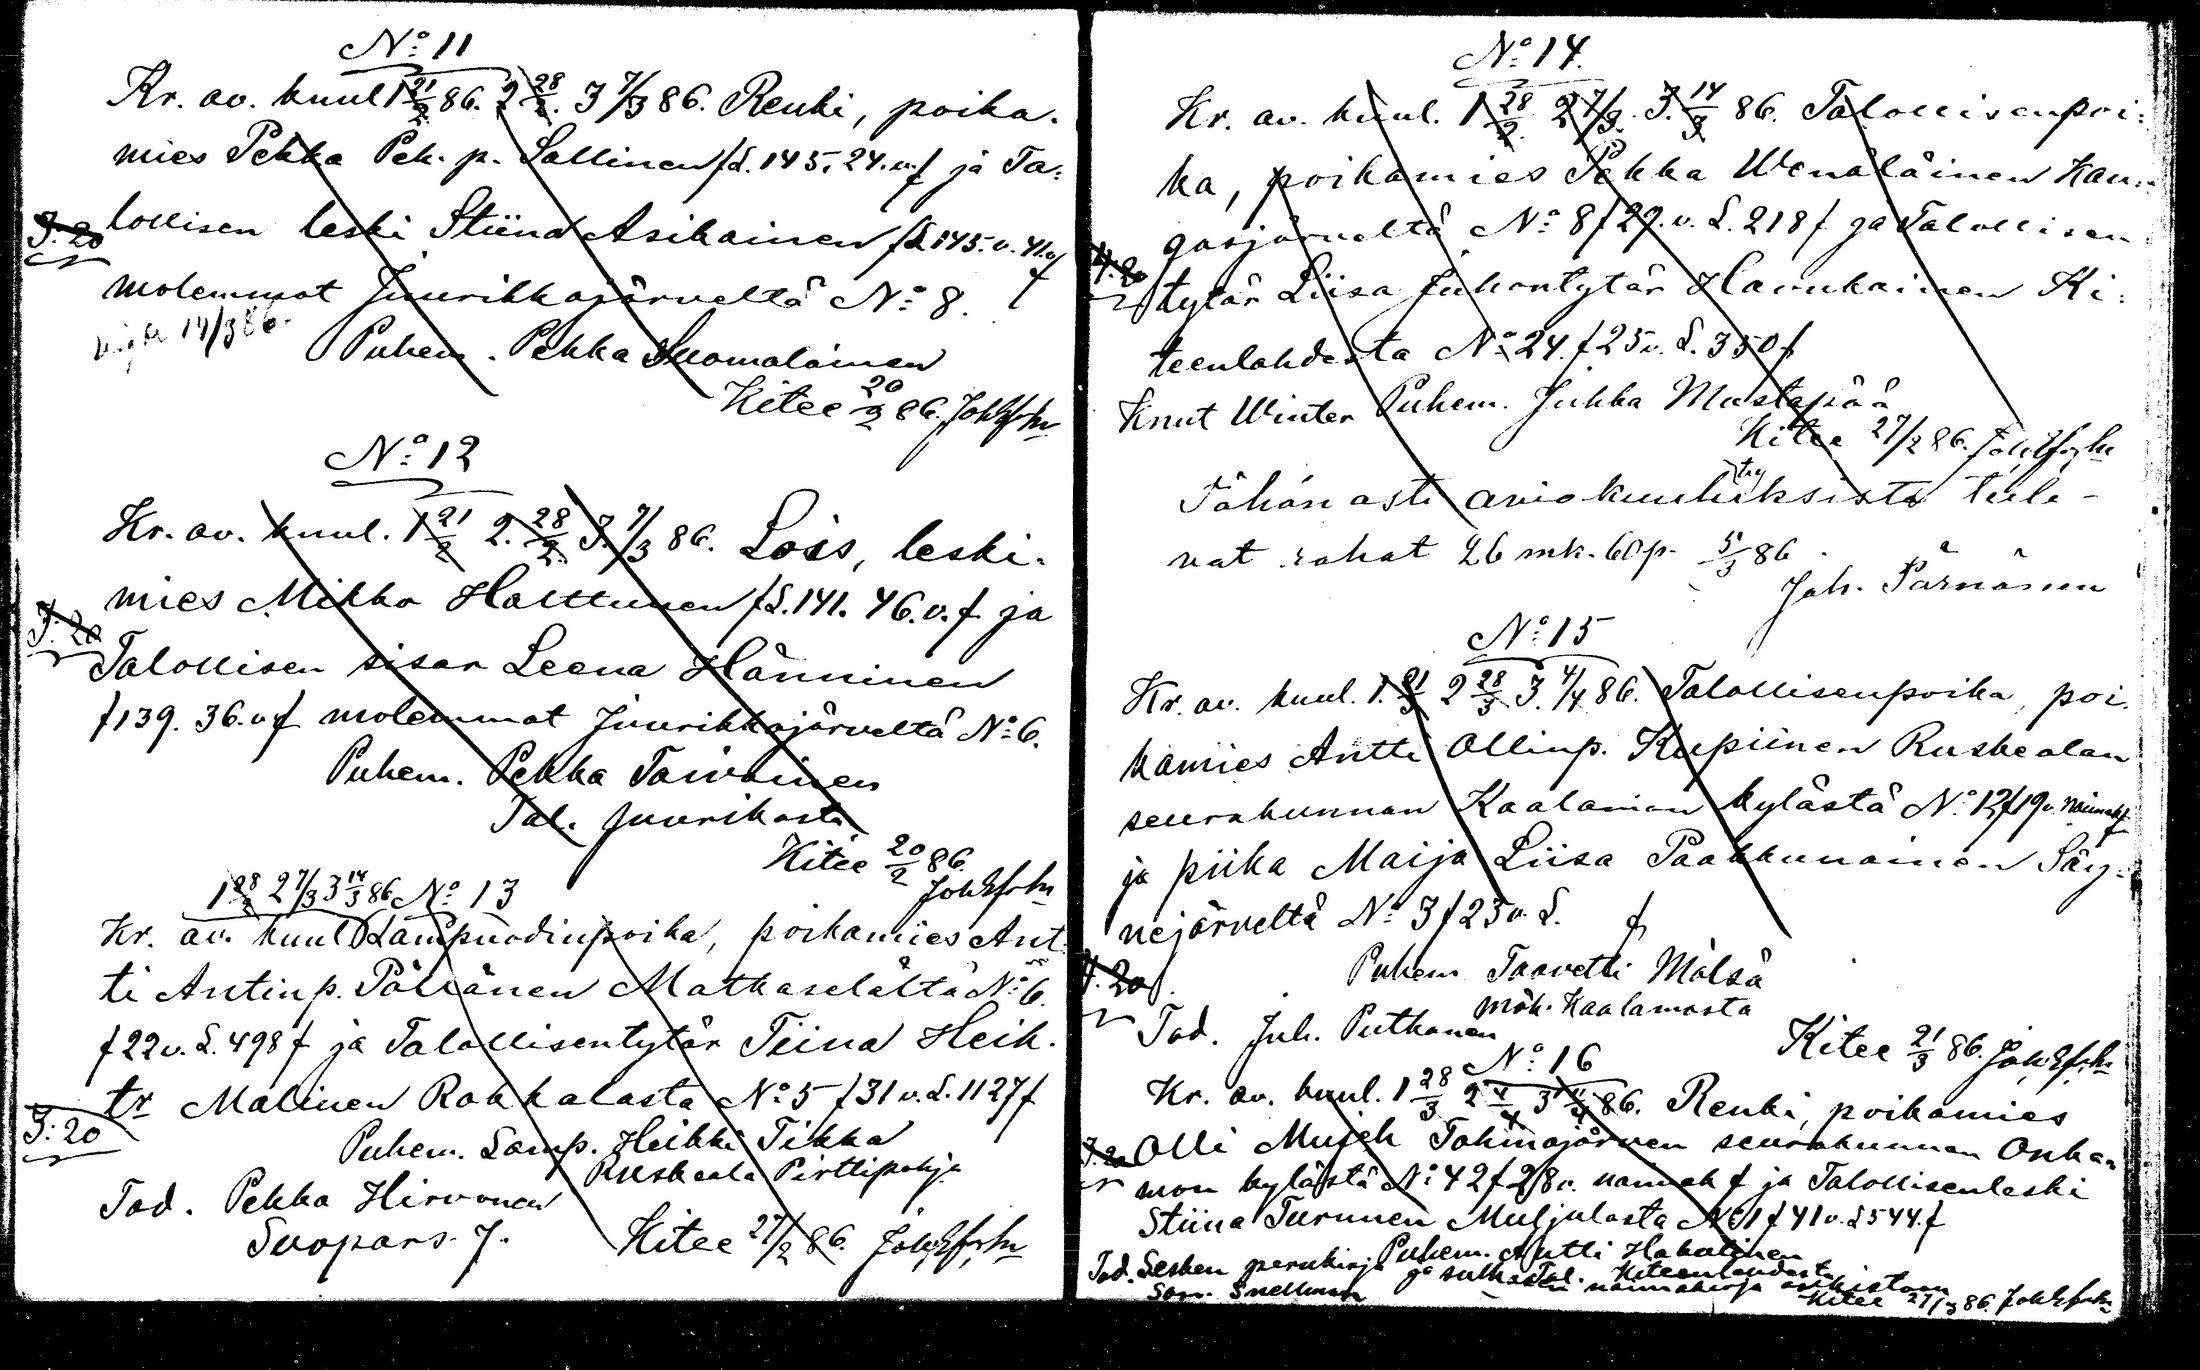 No 11
Kr. av. kuul 1 21/2 86. 2 28/2. 3 7/3 86. Renki, poika-
mies Pekka Pek. p. Sallinen f S. 145. 24. v. f ja Ta-
3: 20 lollisen leski Stiina Asikainen f S. 145. v. 41. f
molemmat Juurikkajärveltä No 8.
14/3 86.
Puhem. Pekka Suomalainen
Kitee 20/2 86.
No 12
Kr. av. kuul. 1 21/2 2. 28/2 3. 7/3 86. Lois, leski-
mies Mikko Halttunen f S. 141. 46. v. f ja
3: 20
Talollisen sisar Leena Hänninen
f 139. 36. v f molemmat Juurikkajärveltä No 6.
Puhem. Pekka Toivainen
Tal. Juurikasta
Kitee 20/2 86.
1 28/2 2 7/3 3 14/3 86 No 13
Kr. av. kuul Lampuodinpoika, poikamies Ant-
ti Antinp. Matkaselältä No 6.
f 22 v. S. 498 f ja Talollisentytär Tiina Heik.
tr Malinen Rokkalasta No 5 f 31 v. S. 1127 f
3: 20
Puhem. Lamp. Heikki Tikka
Ruskeala Pirttipohja
Tod. Pekka Hirvonen
Kitee 27/2 86.
No 14.
Kr. av. kuul. 1 28/2. 2 7/3. 3. 14/3 86. Talollisenpoi-
ka, poikamies Pekka Wenäläinen Kan-
gasjärveltä No 8 f 29. v. S. 218 f ja Talollisen
tytär Liisa Juhontytär Havukainen Ki-
teenlahdesta No 24. f 25 v. S. 350 f
Knut Winter Puhem. Jukka Mustapää
Kitee 27/2 86.
Tähän asti aviokuulutuksista tule-
vat rahat 26 mk. 60 p. 5/3 86
Joh. Pärnänen
No 15
Kr. av. kuul. 1. 21/3 2 28/3 3. 4/4 86. Talollisenpoika, poi-
kamies Antti Ollinp. Kupiinen Ruskealan
seurakunnan Kaalamon kylästä No 12 f 19 v.
ja piika Maija Liisa Paakkunainen Säy-
nejärveltä No 3 f 23 v. S. f
Puhem Taavetti Mälsä
3. 20
mök. Kaalamosta
Tod. Juh. Puthonen
Kitee 21/3 86.
No 16
Kr. av. kuul. 1 28/3 2 4/4 3 11/4 86. Renki, poikamies
3. 20 Olli Tohmajärven seurakunnan Onka-
mon kylästä No 42 f 28 v. f ja Talollisenleski
Stiina Turunen Muljulasta No 1 f 41 v. S 544. f
Puhem. Antti Hakulinen
Tod. Lesken perukirja ja
Tal. Kiteenlahdesta
Sam. Snellman
Kitee 27/3 86.